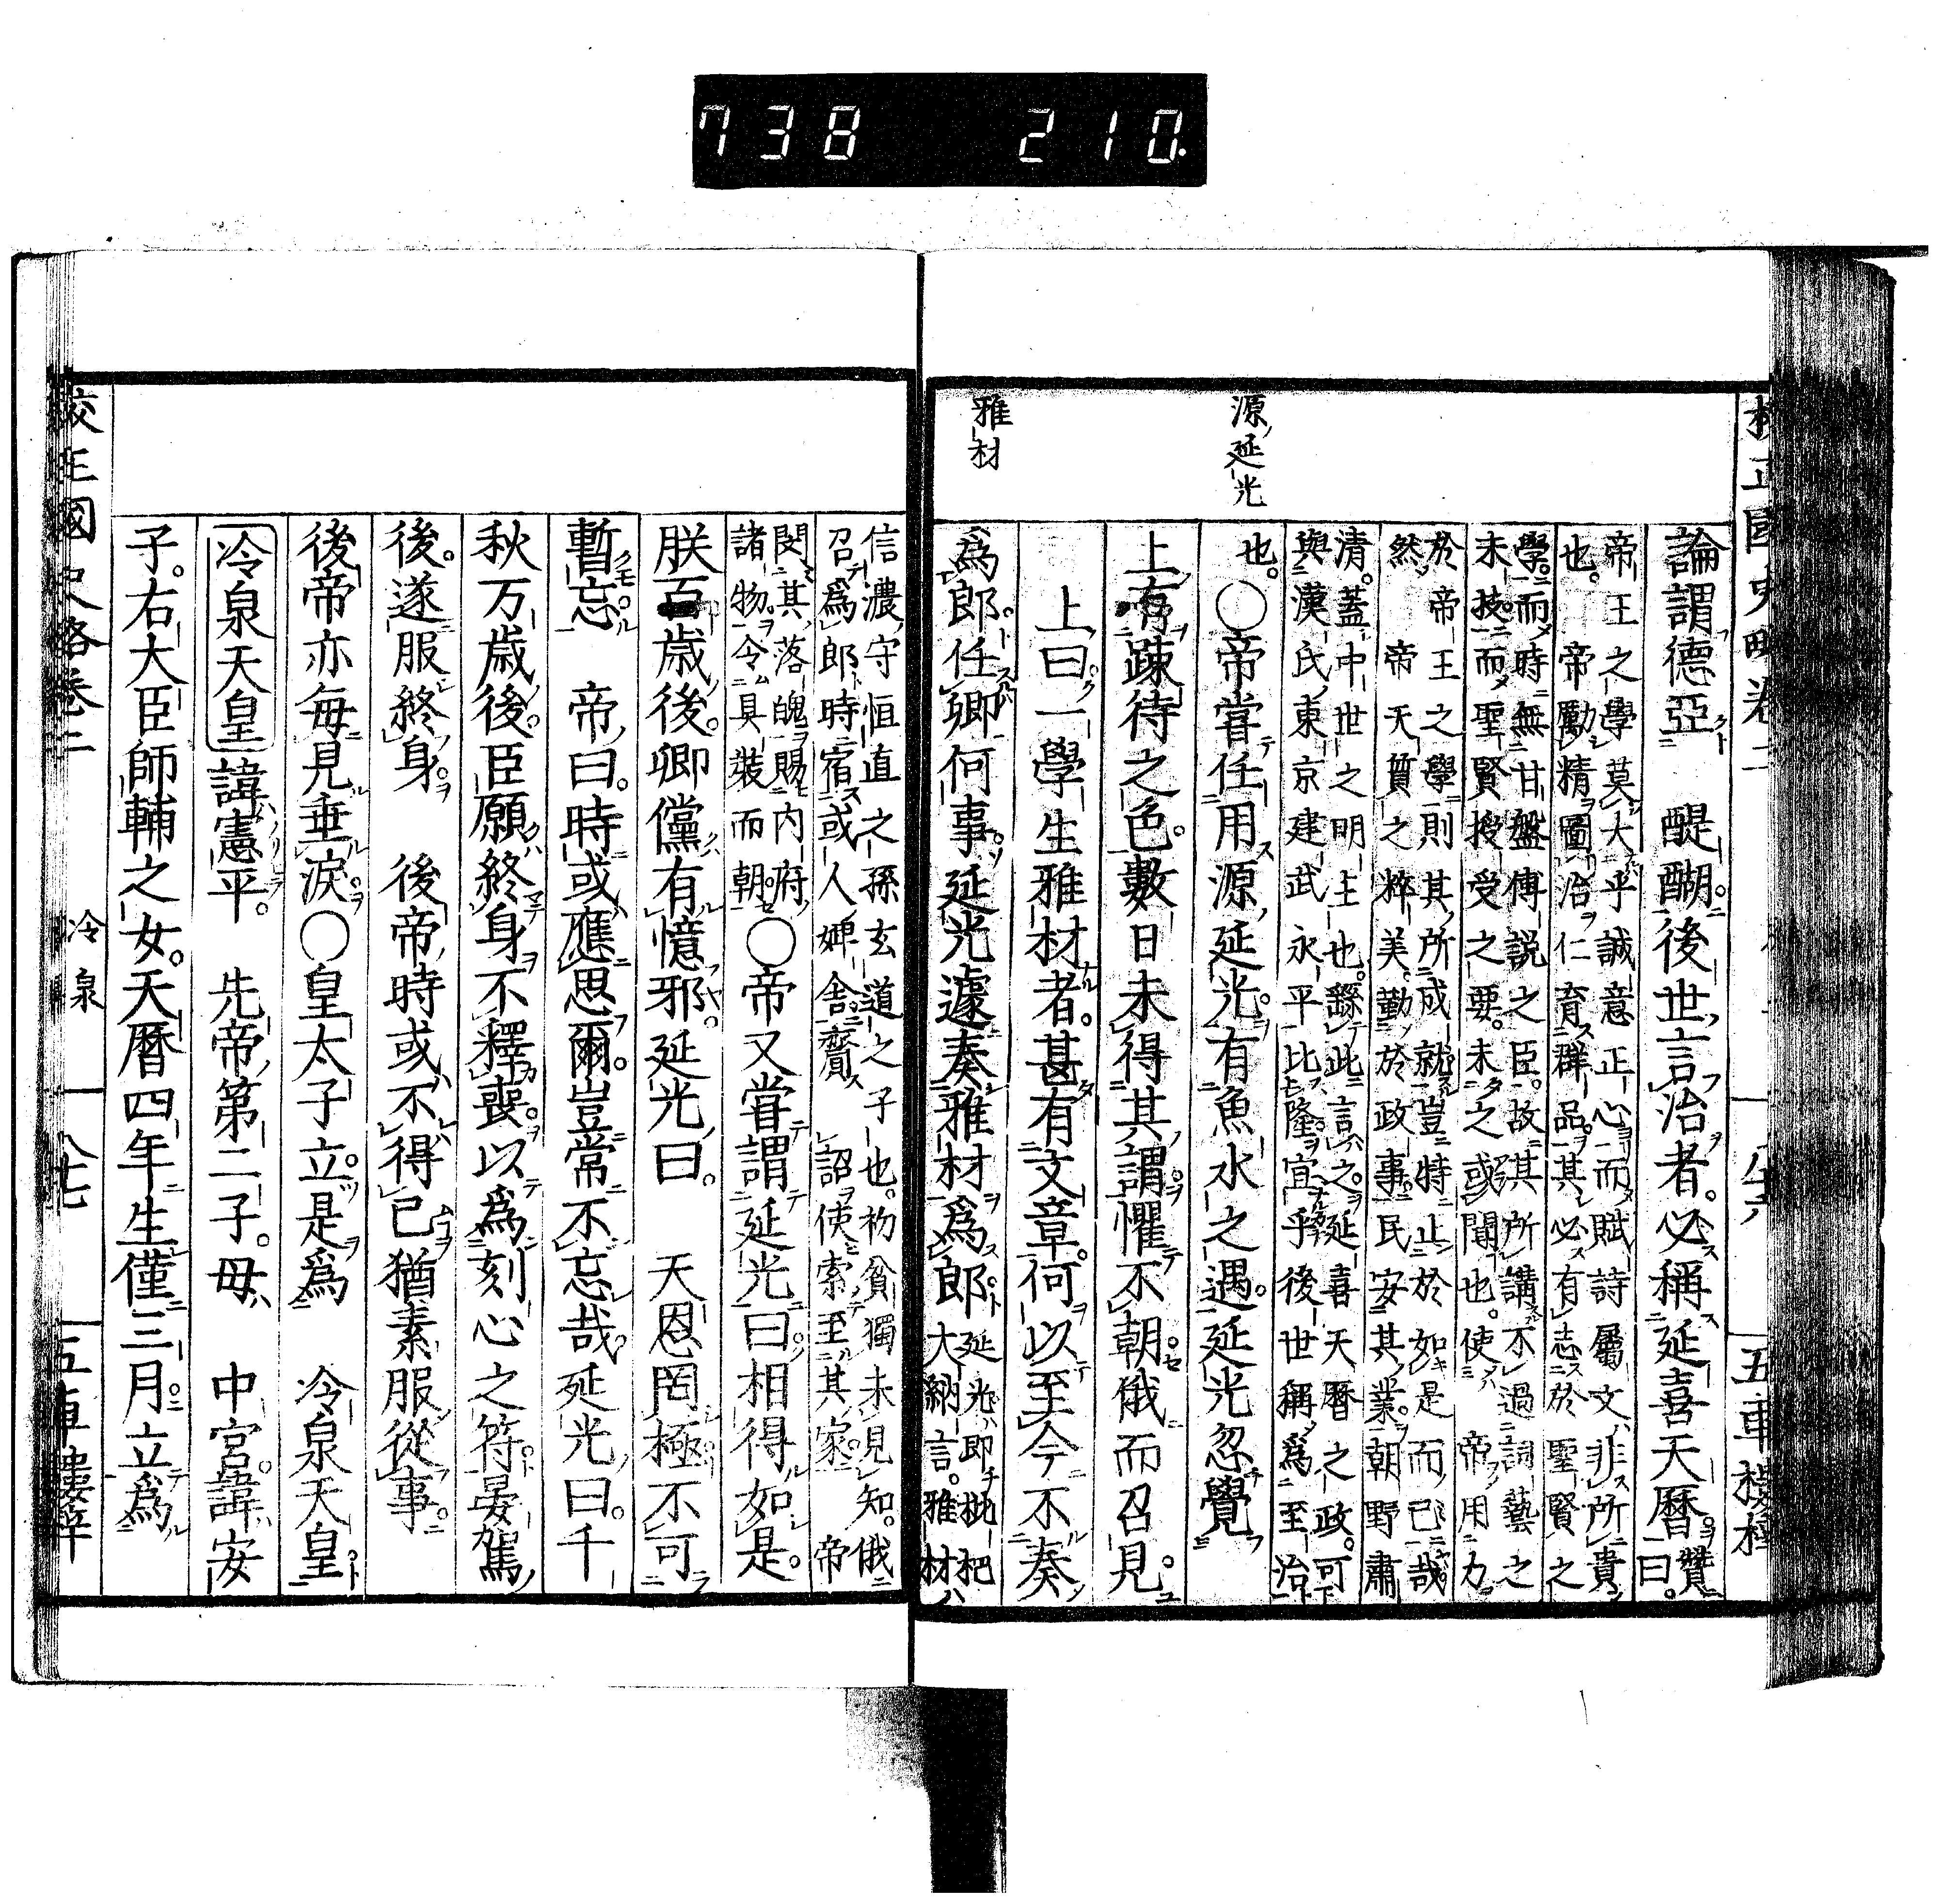 738 210.
源延光
雅材
論謂德亞 醍醐後世言治者必稱延喜天曆贊曰
帝王之學莫大乎誠意正心而賦詩屬文非所貴
也 帝勵精圖治仁育群品其必有志於聖賢之
學而時無甘盤傅説之臣故其所講不過詞藝之
末技而聖賢授受之要未之或聞也使 帝用力
於帝王之學則其所成就豈特止於如是而已哉
然 帝天質之粹美勤於政事民安其業朝野肅
清蓋中世之明主也繇此言之延喜天曆之政可
與漢氏東京建武永平比隆宜乎後世稱爲至治
也 ○帝嘗任用源延光有魚水之遇延光忽覺
上有疎待之色數日未得其謂懼不朝俄而召見
上曰一學生雅材者甚有文章何以至今不奏
爲郎任卿何事延光遽奏雅材爲郎
延光即批把
大納言雅材ハ
信濃守恒直之孫玄道之子也初貧獨未見知俄
召爲郎時宿或人婢舍齎 詔使索至其家 帝
閔其落魄賜内府
諸物令具裝而朝
○帝又嘗謂延光曰相得如是
朕百歳後卿儻有憶邪延光曰 天恩罔極不可
暫忘 帝曰時或應思爾豈常不忘哉延光曰千
秋万歳後臣願終身不釋喪以爲刻心之符晏駕
後遂服終身 後帝時或不得已猶素服從事
後帝亦毎見垂涙○皇太子立是爲 冷泉天皇
冷泉天皇 諱憲平 先帝第二子母 中宮諱安
子右大臣師輔之女天曆四年生僅三月立爲
校正國史略卷二 冷泉 一八七 五車樓梓